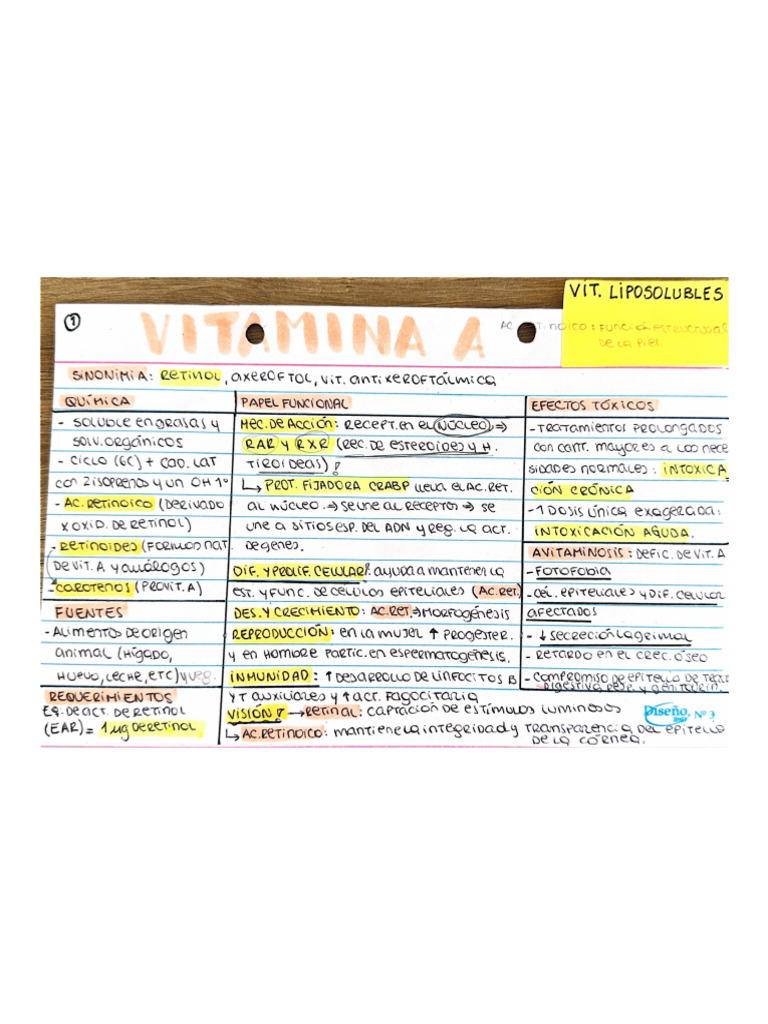 VIT. LIPOSOLUBLES
1
VITAMINA A
AC. RETINOICO: FUNCIÓN ESTRUCTURAL
DE LA PIEL
SINONIMIA: RETINOL, AXEROFTOL, VIT. ANTIXEROFTÁLMICA
QUÍMICA
- SOLUBLE EN GRASAS Y
SOLV. ORGÁNICOS
- CICLO (6C) + CAD. LAT
CON 2 ISOPRENOS Y UN OH 1º
- AC. RETINOICO (DERIVADO
X OXID. DE RETINOL)
- RETINOIDES (FORMAS NAT
DE VIT. A Y ANÁLOGOS)
- CAROTENOS (PROVIT. A)
FUENTES
- ALIMENTOS DE ORIGEN
ANIMAL (HÍGADO,
HUEVO, LECHE, ETC) Y VEG.
REQUERIMIENTOS
EQ. DE ACT. DE RETINOL
(EAR) = 1 µg DE RETINOL
PAPEL FUNCIONAL
MEC. DE ACCIÓN: RECEPT. EN EL NÚCLEO ⇒
RAR Y RXR (REC. DE ESTEROIDES Y H.
TIROIDEAS)!
↳ PROT. FIJADORA CRABP LLEVA EL AC. RET.
AL NÚCLEO. ⇒ SE UNE AL RECEPTOR ⇒ SE
UNE A SITIOS ESP. DEL ADN Y REG. LA ACT.
DE GENES.
DIF. Y PROLIF. CELULAR: AYUDA A MANTENER LA
EST. Y FUNC. DE CÉLULAS EPITELIALES (AC. RET.)
DES. Y CRECIMIENTO: AC. RET. ⇒ MORFOGÉNESIS
REPRODUCCIÓN: EN LA MUJER ↑ PROGESTER.
Y EN HOMBRE PARTIC. EN ESPERMATOGÉNESIS.
INMUNIDAD: ↑ DESARROLLO DE LINFOCITOS B
Y T AUXILIARES Y ↑ ACT. FAGOCITARIA
VISIÓN: → RETINAL: CAPTACIÓN DE ESTÍMULOS LUMINOSOS
↳ AC. RETINOICO: MANTIENE LA INTEGRIDAD Y TRANSPARENCIA DEL EPITELIO
DE LA CÓRNEA.
EFECTOS TÓXICOS
- TRATAMIENTOS PROLONGADOS
CON CANT. MAYORES A LAS NECE
SIDADES NORMALES: INTOXICA
CIÓN CRÓNICA
- 1 DOSIS ÚNICA EXAGERADA:
INTOXICACIÓN AGUDA.
AVITAMINOSIS: DEFIC. DE VIT. A
- FOTOFOBIA
- CÉL. EPITELIALES Y DIF. CELULAR
AFECTADOS
- ↓ SECRECIÓN LAGRIMAL
- RETARDO EN EL CREC. ÓSEO
- COMPROMISO DE EPITELIO DE TRAC
DIGESTIVO, RESP. Y GENITOURIN.
Diseño Nº 3